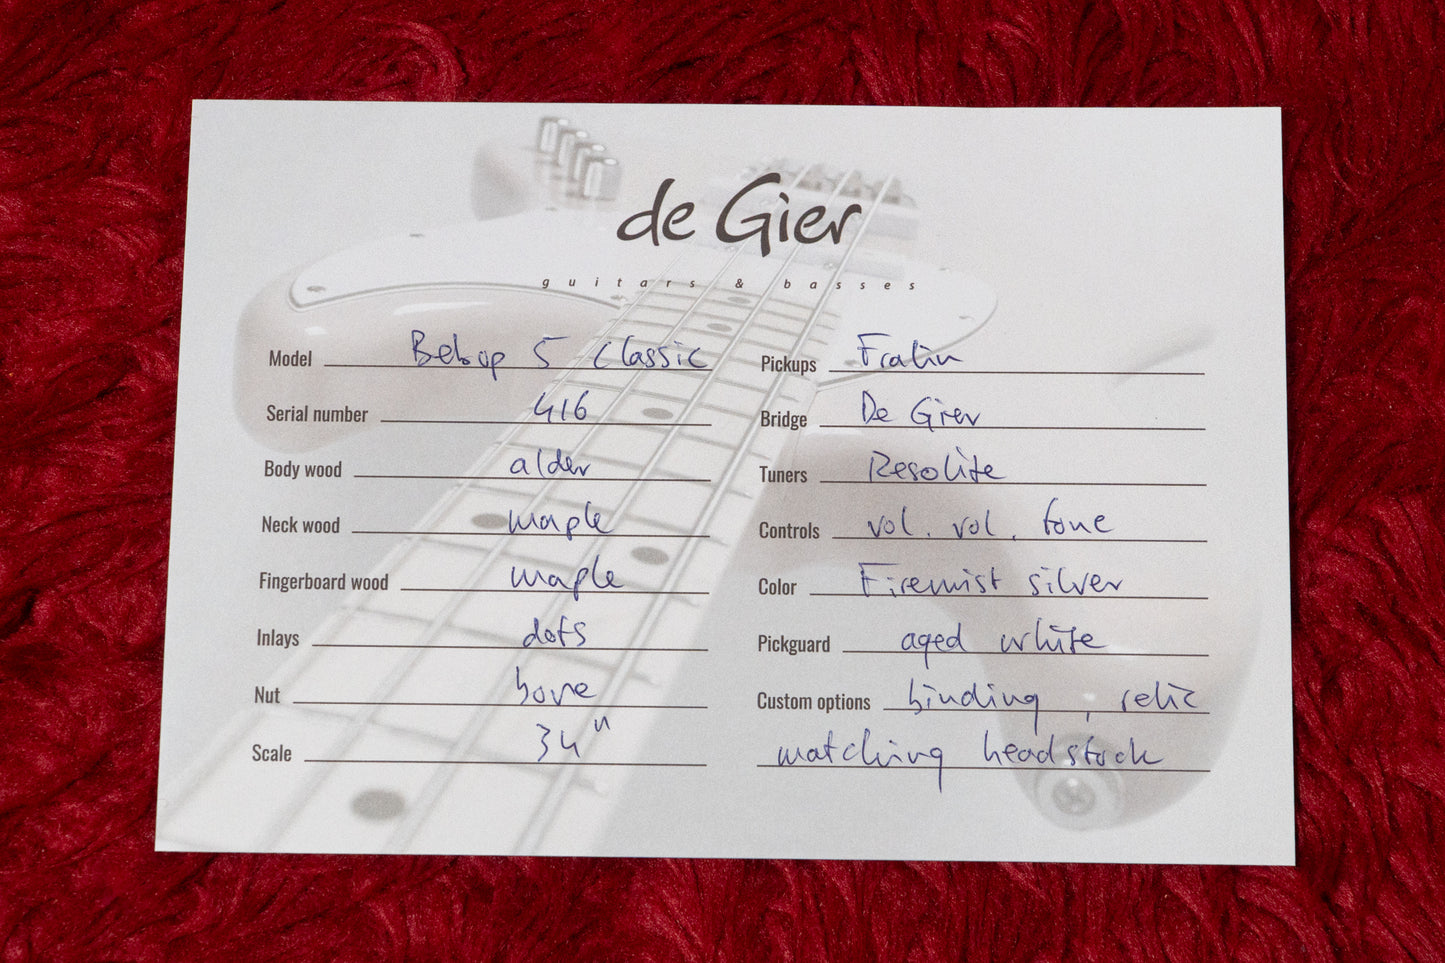 de Gier
guitars & basses
Model Bebop 5 Classic
Serial number 416
Body wood alder
Neck wood maple
Fingerboard wood maple
Inlays dots
Nut bone
Scale 34"
Pickups Fralin
Bridge De Gier
Tuners Resolite
Controls vol. vol. tone
Color Firemist silver
Pickguard aged white
Custom options binding, relic
matching headstock